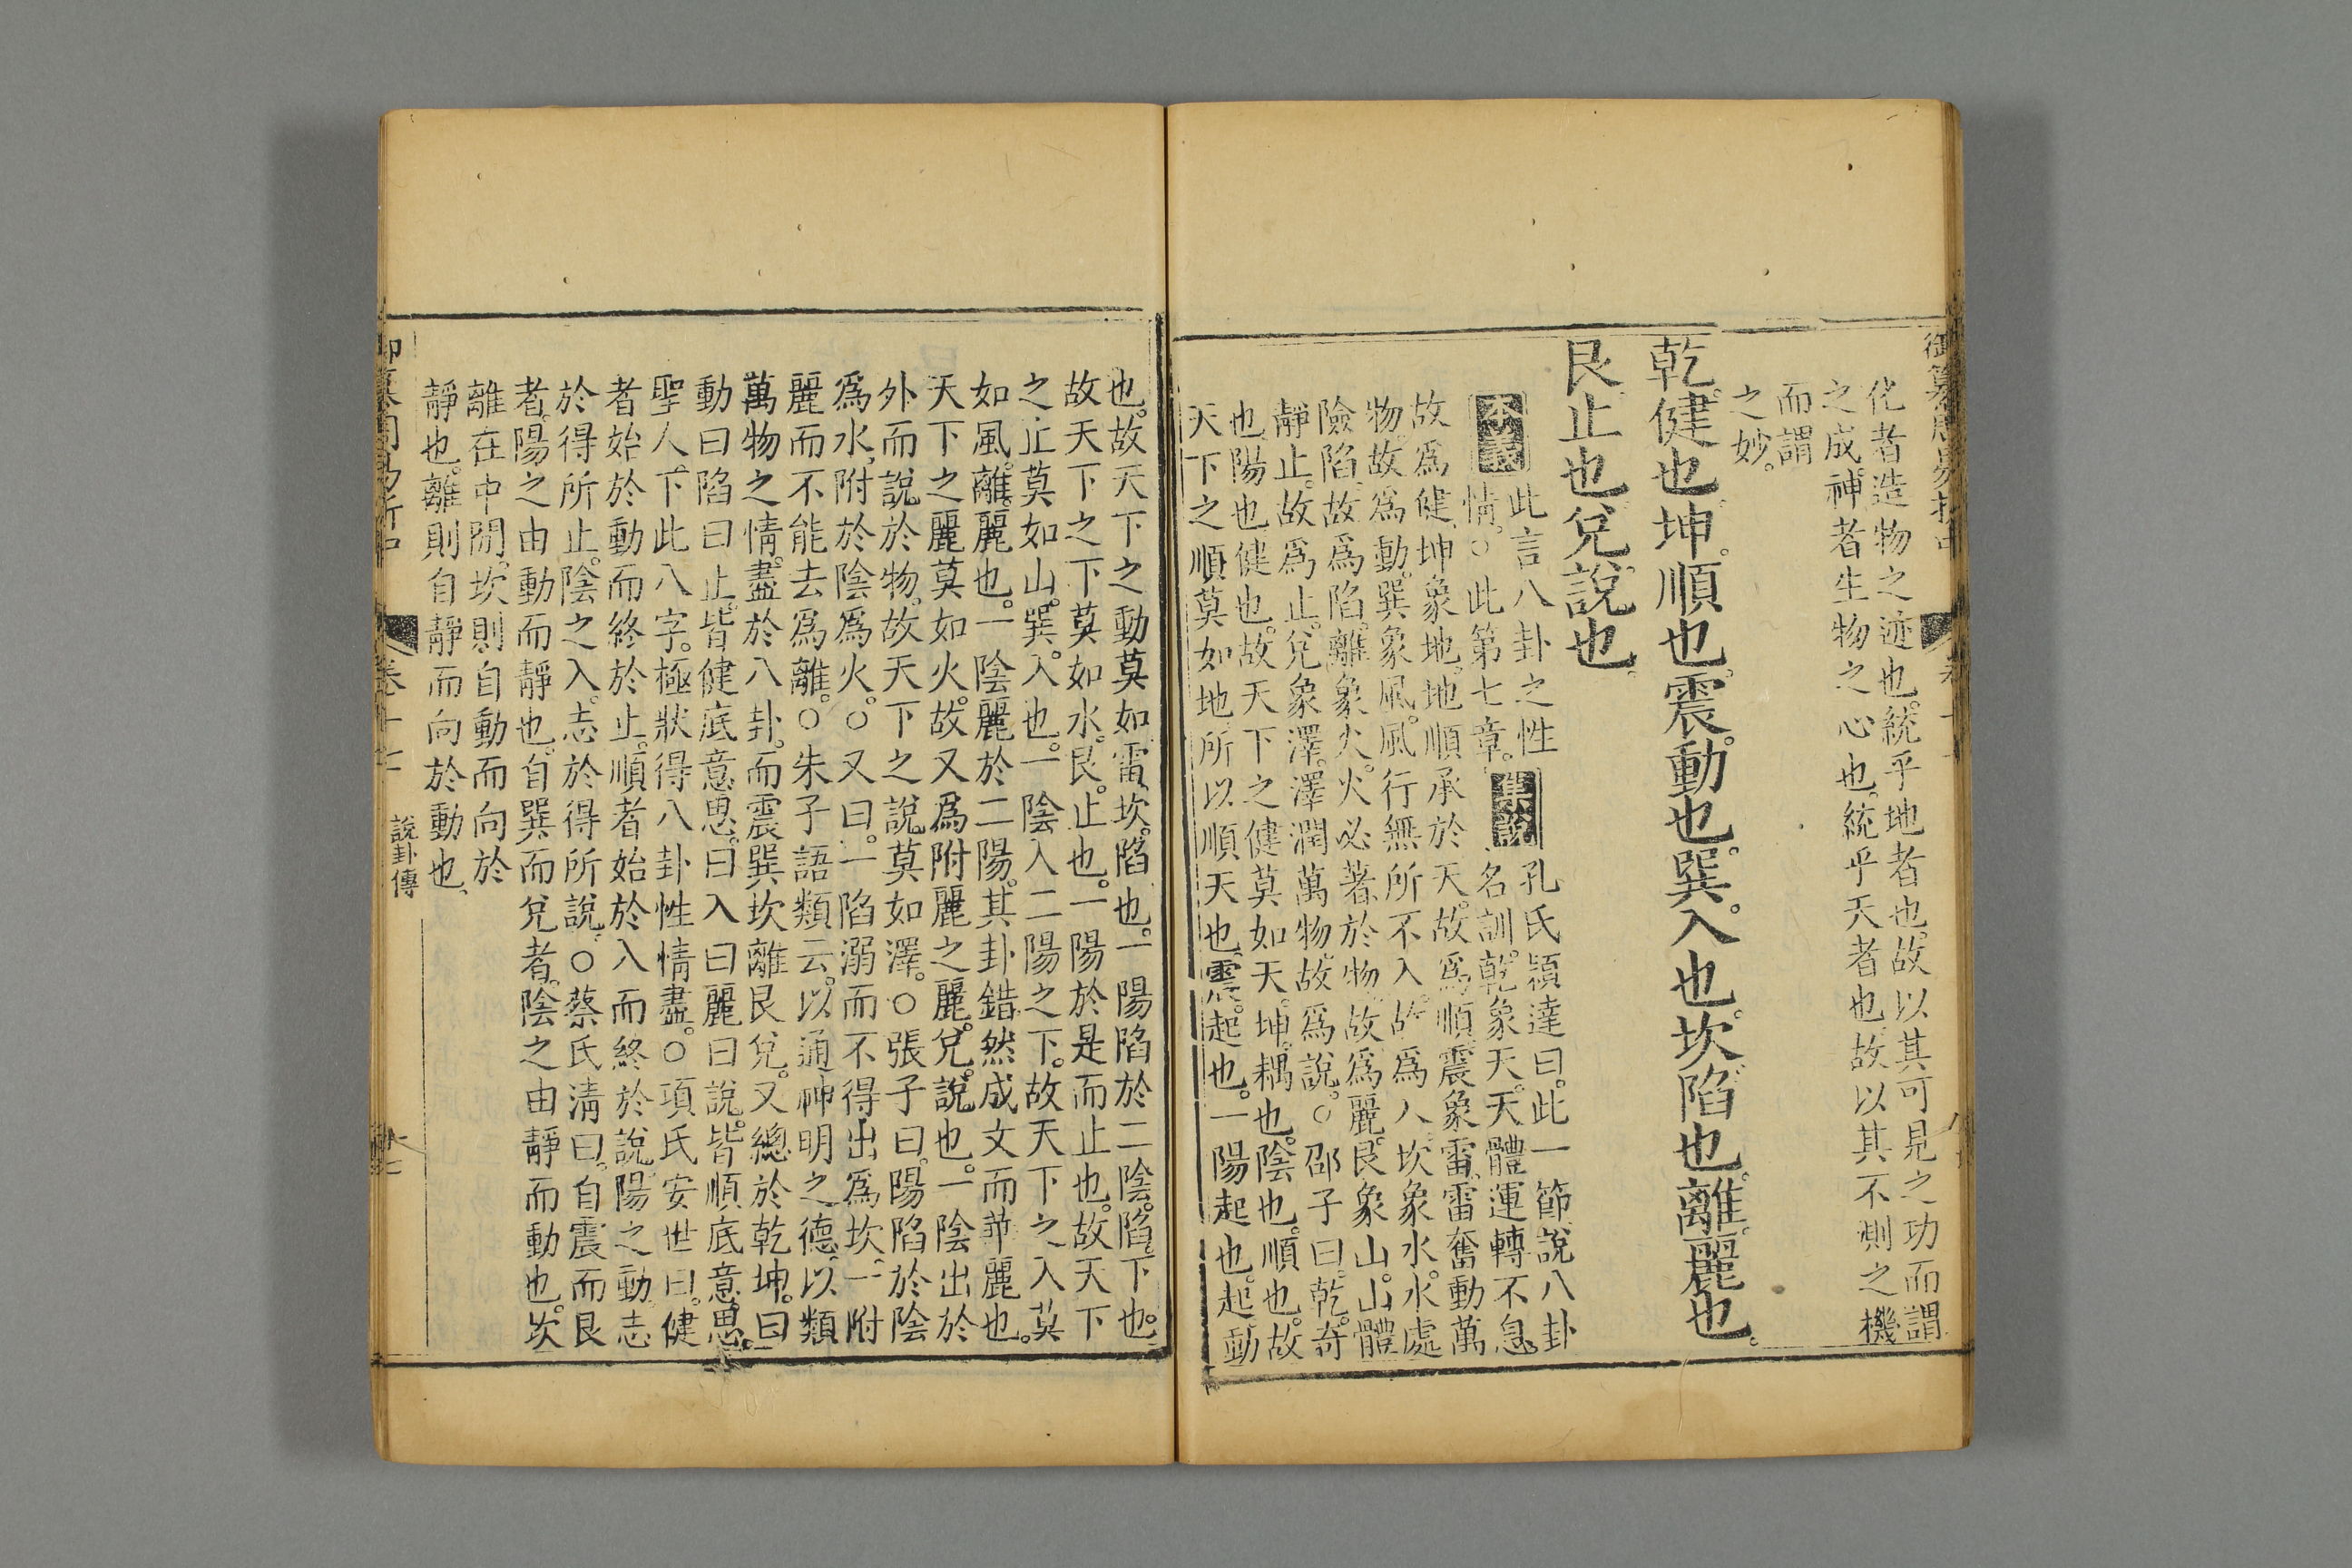 御纂周易折中
化者造物之迹也。統乎地者也。故以其可見之功而謂
之成。神者生物之心也。統乎天者也。故以其不測之機
而謂
之妙。
乾。健也。坤。順也。震。動也。巽。入也。坎。陷也。離。麗也。
艮。止也。兌。說也。
本義 此言八卦之性 集說 孔氏穎達曰。此一節說八卦
情。○此第七章。 名訓。乾象天。天體運轉不息。
故為健。坤象地。地順承於天。故為順。震象雷。雷奮動萬
物。故為動。巽象風。風行無所不入。故為入。坎象水。水處
險陷。故為陷。離象火。火必著於物。故為麗。艮象山。山體
靜止。故為止。兌象澤。澤潤萬物。故為說。○邵子曰。乾。奇
也。陽也。健也。故天下之健莫如天。坤。耦也。陰也。順也。故
天下之順莫如地。所以順天也。震。起也。一陽起也。起。動
也。故天下之動莫如雷。坎。陷也。一陽陷於二陰。陷。下也。
故天下之下莫如水。艮。止也。一陽於是而止也。故天下
之止莫如山。巽。入也。一陰入二陽之下。故天下之入莫
如風。離。麗也。一陰麗於二陽。其卦錯然成文而華麗也。
天下之麗莫如火。故又為附麗之麗。兌。說也。一陰出於
外而說於物。故天下之說莫如澤。○張子曰。陽陷於陰
為水。附於陰為火。○又曰。一陷溺而不得出為坎。一附
麗而不能去為離。○朱子語類云。以通神明之德。以類
萬物之情。盡於八卦。而震巽坎離艮兌。又總於乾坤。曰
動曰陷曰止。皆健底意思。曰入曰麗曰說。皆順底意思。
聖人下此八字。極狀得八卦性情盡。○項氏安世曰。健
者始於動而終於止。順者始於入而終於說。陽之動志
於得所止。陰之入。志於得所說。○蔡氏淸曰。自震而艮
者。陽之由動而靜也。自巽而兌者。陰之由靜而動也。坎
離在中閒。坎則自動而向於
靜也。離則自靜而向於動也。
御纂周易折中 卷十七 說卦傳